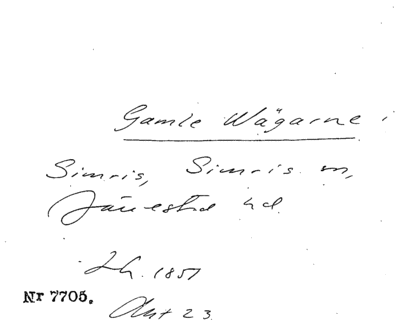 Gamle Wägarne i
Simris, Simris sn,
Järrestad hd
Lh. 1851
Nr 7705.
Akt 23